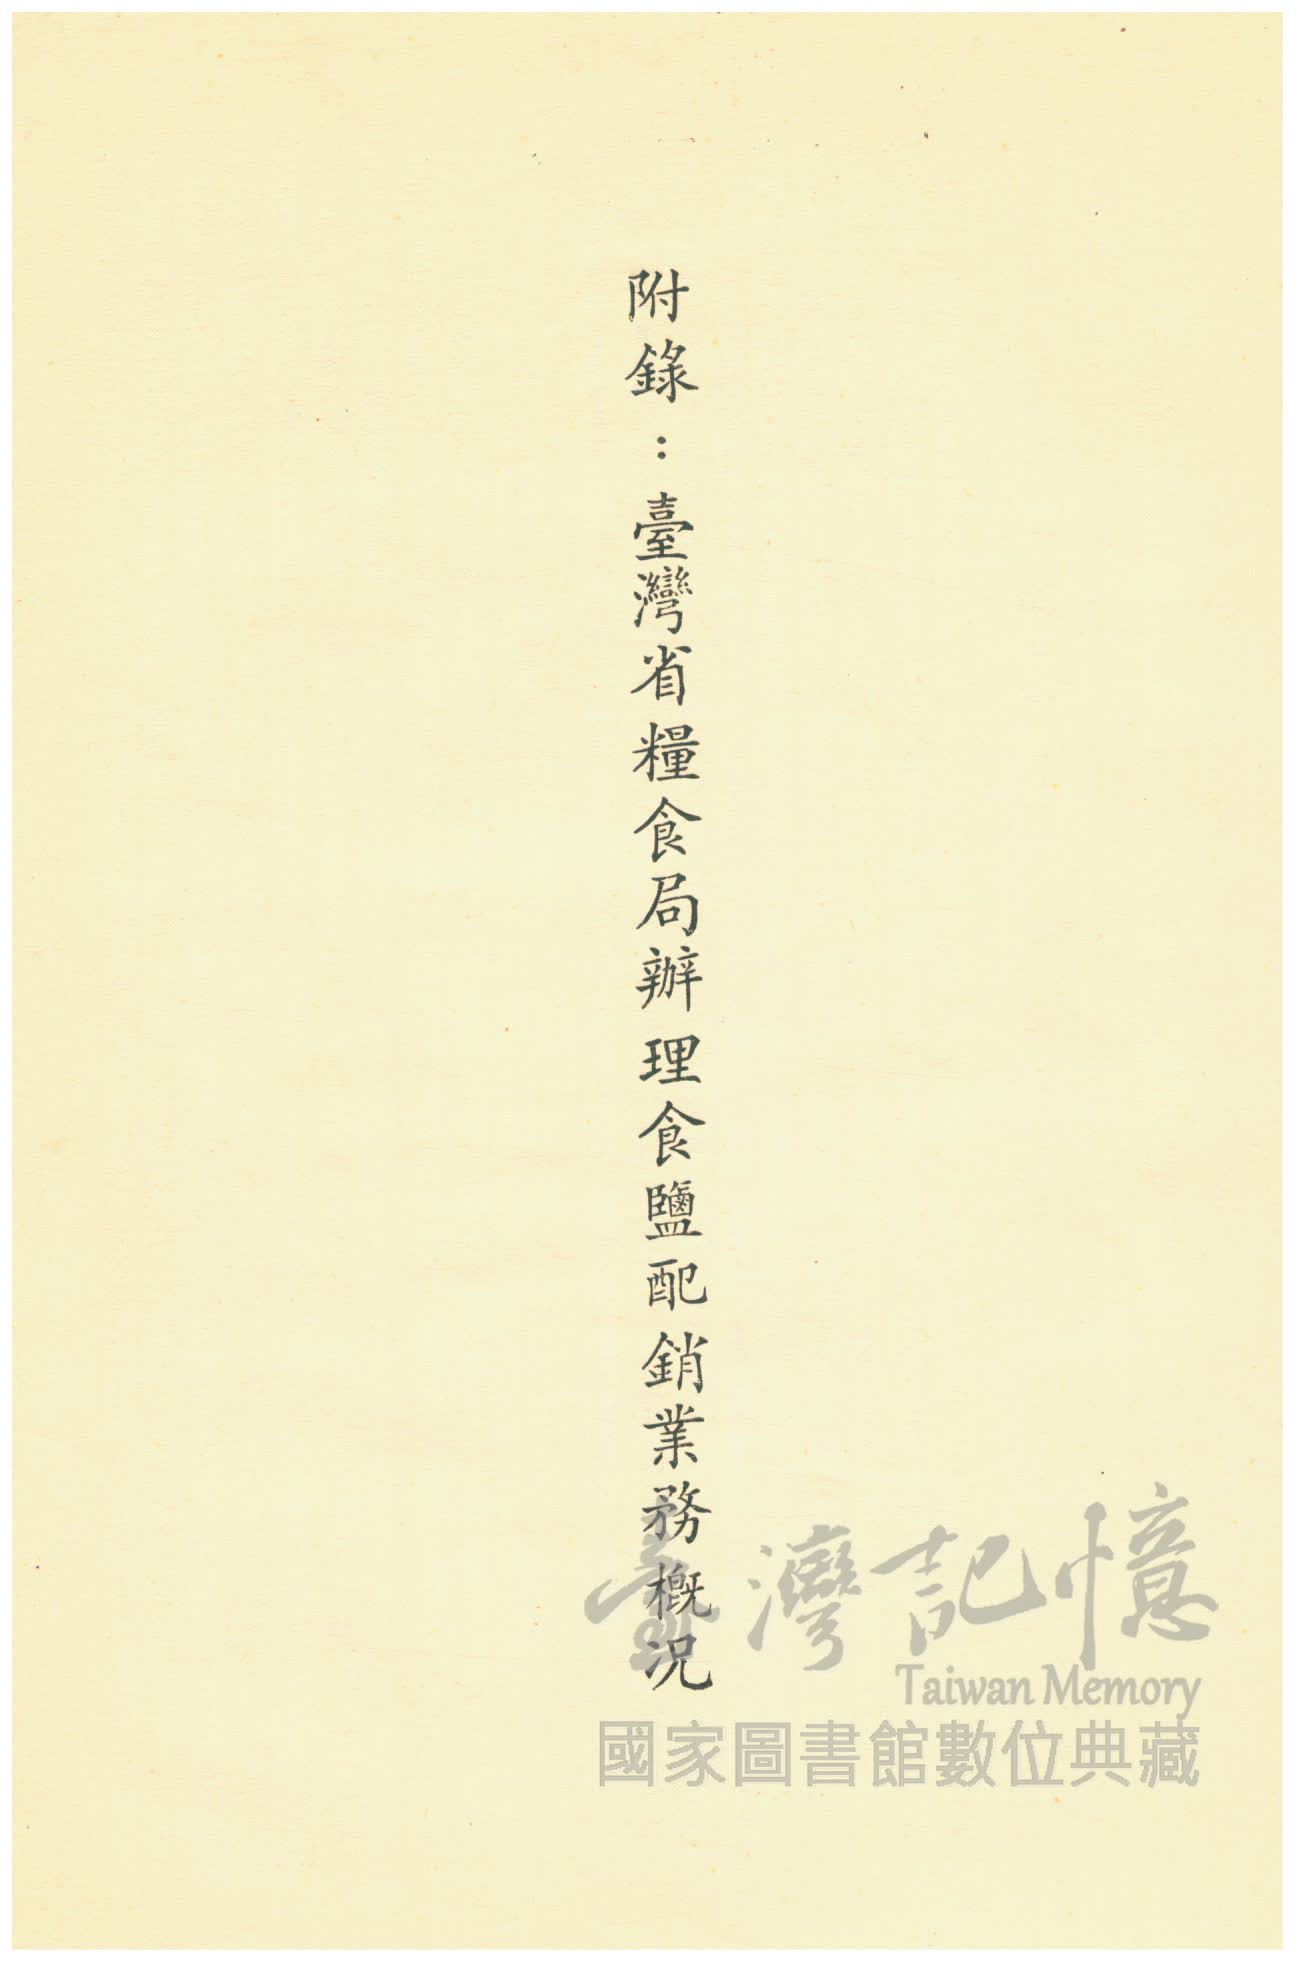 附錄：臺灣省糧食局辦理食鹽配銷業務概况
臺灣記憶
Taiwan Memory
國家圖書館數位典藏